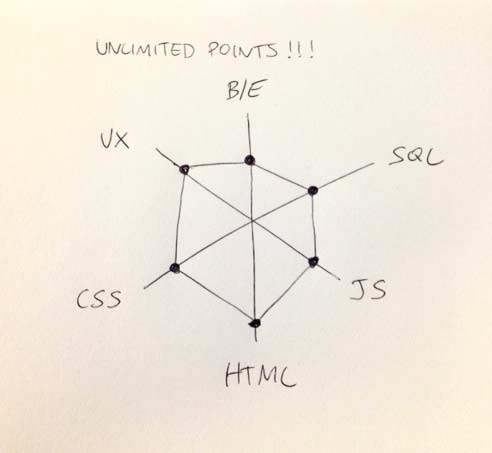 UNLIMITED POINTS!!!
B/E
UX
SQL
CSS
JS
HTML